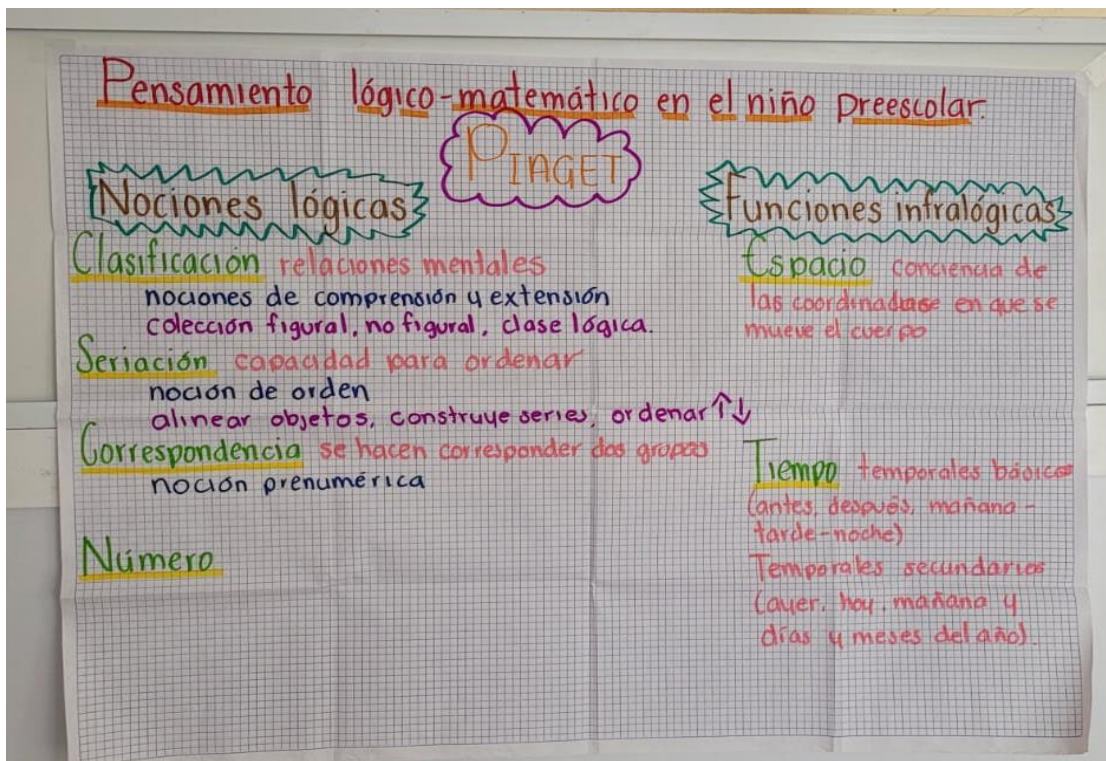 Pensamiento lógico-matemático en el niño preescolar.
PIAGET
Nociones lógicas
Clasificación relaciones mentales
nociones de comprensión y extensión
colección figural, no figural, clase lógica.
Seriación capacidad para ordenar
noción de orden
alinear objetos, construye series, ordenar ↑↓
Correspondencia se hacen corresponder dos grupos
noción prenumérica
Número
Funciones infralógicas
Espacio conciencia de
las en que se
mueve el cuerpo
Tiempo temporales básicos
(antes, después, mañana-
tarde-noche)
Temporales secundarios
(ayer, hoy, mañana y
días y meses del año).